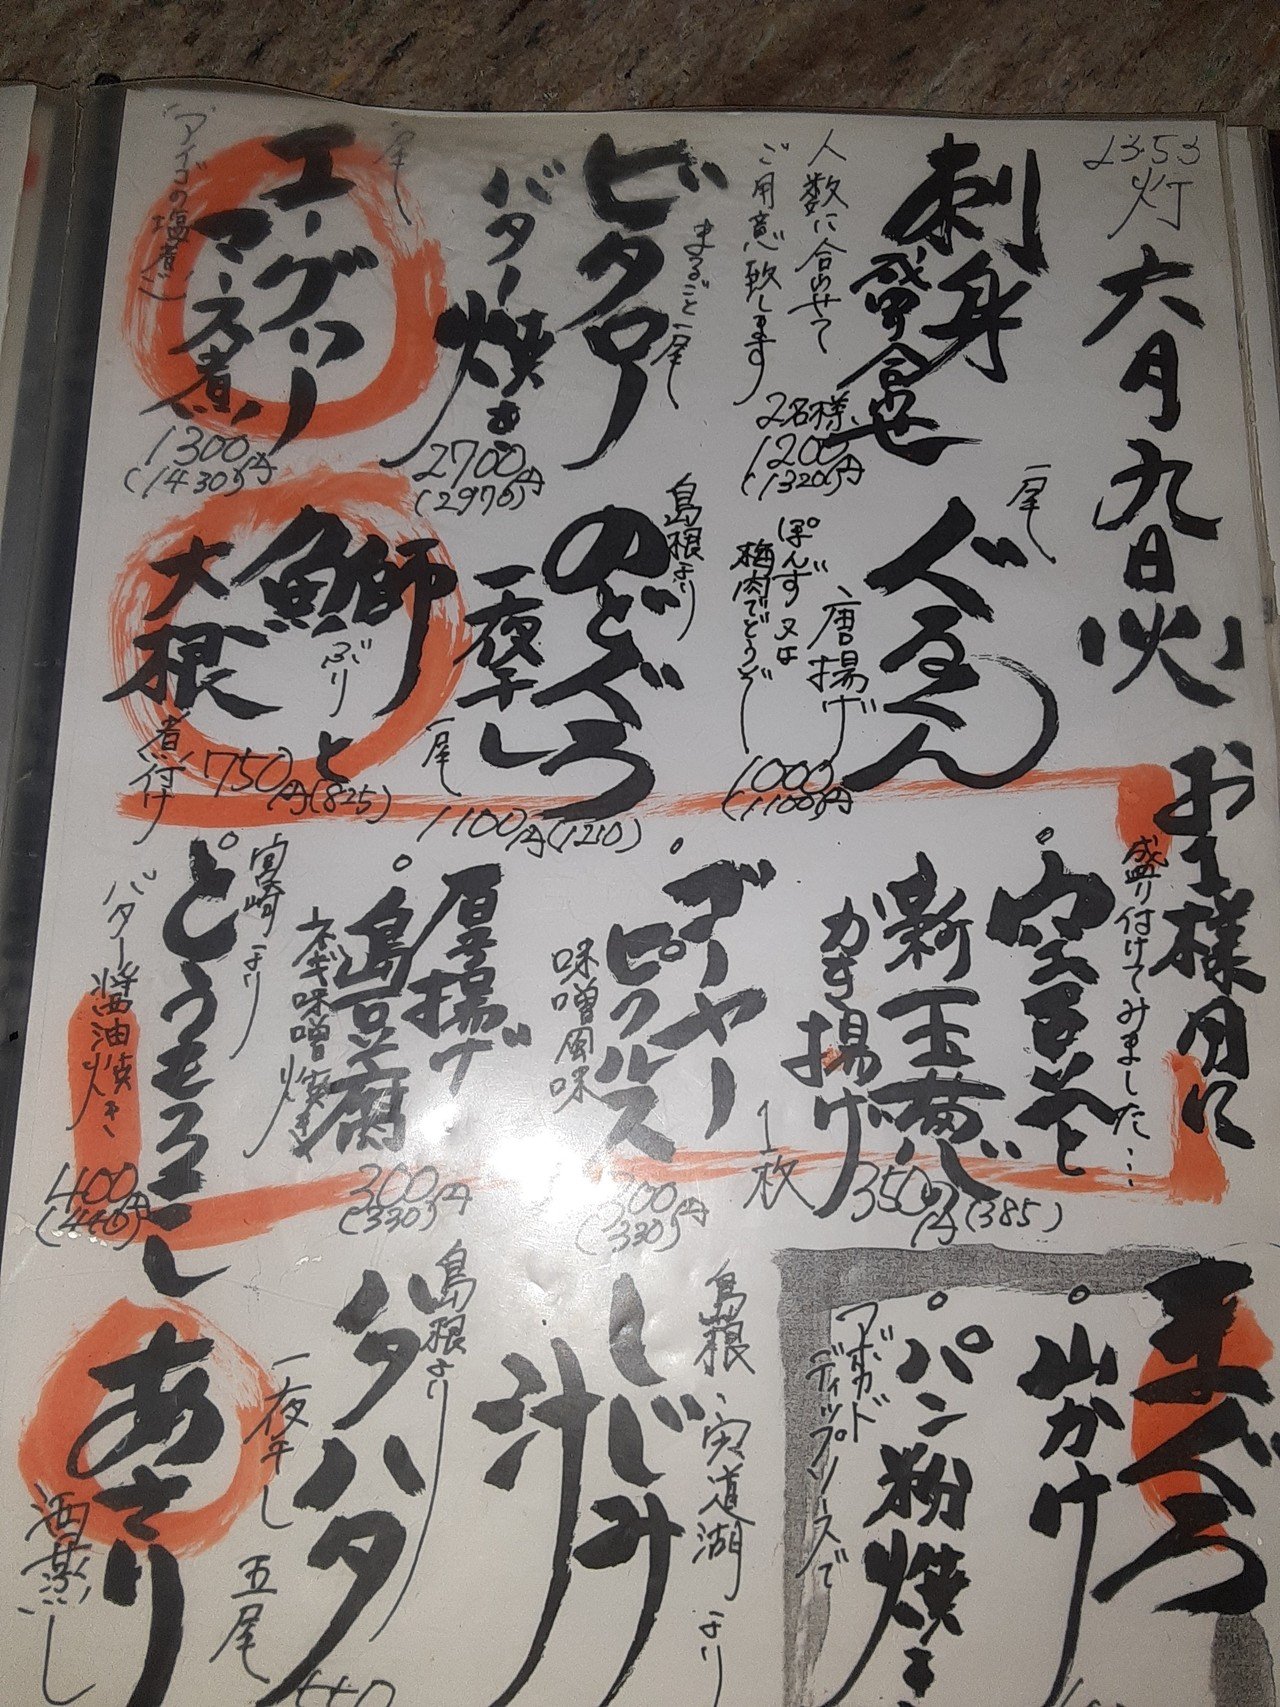 2353
灯
六月九日(火)
刺身
盛り合せ
人数に合わせて
ご用意致します
2名様
1200
(1320)円
まるごと一尾
ビタロー
バター焼き
2700円
(2970)
一尾
エーグヮー
マース煮
(アイゴの塩煮)
1300円
(1430)
一尾
ぐるくん
唐揚げ
ぽんず又は
梅肉でどうぞ
1000
(1100)円
島根より
のどぐろ
一夜干し
一尾
1100円(1210)
鰤と
ぶり
大根
煮付け
750円(825)
お子様用に
盛り付けてみました…
新玉葱
かき揚げ
1枚
350円(385)
ゴーヤー
ピクルス
味噌風味
300円
(330)
厚揚げ
島豆腐
ネギ味噌焼き
300円
(330)
宮崎より
とうもろこし
バター醤油焼き
400円
(440)
まぐろ
山かけ
パン粉焼き
アボカド
ディップソースで
島根、宍道湖より
しじみ
汁
島根より
ハタハタ
一夜干し
五尾
550
あさり
酒蒸し